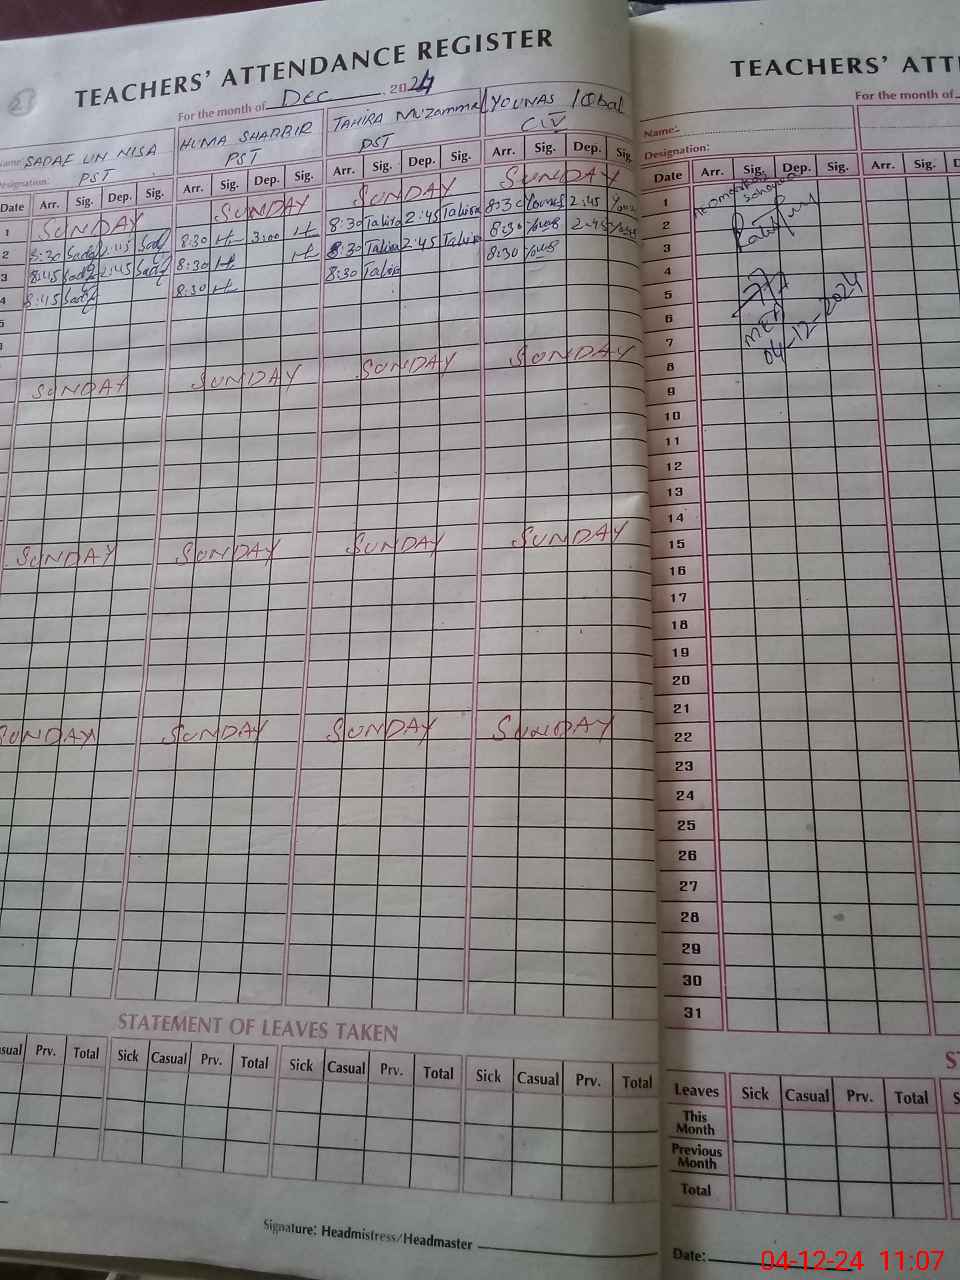 TEACHERS' ATTENDANCE REGISTER
For the month of Dec 2024
Name: SADAF UN NISA HUMA SHABBIR TAHIRA MUzammal YOUNAS Iqbal
Designation: PST PST PST CIV
Date Arr. Sig. Dep. Sig. Arr. Sig. Dep. Sig. Arr. Sig. Dep. Sig. Arr. Sig. Dep. Sig.
1 SUNDAY SUNDAY SUNDAY SUNDAY
2 8:30 Sadaf 2:45 Sadaf 8:30 H 3:00 H 8:30 Tahira 2:45 Tahira 8:30 Younas 2:45 Younas
3 8:45 Sadaf 2:45 Sadaf 8:30 H H 8:30 Tahira 2:45 Tahira 8:30 Younas 2:45 Younas
4 8:45 Sadaf 8:30 H 8:30 Tahira 8:30 Younas
SUNDAY SUNDAY SUNDAY SUNDAY
SUNDAY SUNDAY SUNDAY SUNDAY
SUNDAY SUNDAY SUNDAY SUNDAY
STATEMENT OF LEAVES TAKEN
Prv. Total Sick Casual Prv. Total Sick Casual Prv. Total Sick Casual Prv. Total
Signature: Headmistress/Headmaster
TEACHERS' ATT
For the month of
Name:
Designation:
Date Arr. Sig. Dep. Sig. Arr. Sig. D
1
2
3
4
5
6
7
8
9
10
11
12
13
14
15
16
17
18
19
20
21
22
23
24
25
26
27
28
29
30
31
MEA
04-12-2024
Leaves Sick Casual Prv. Total
This Month
Previous Month
Total
Date:
04-12-24 11:07